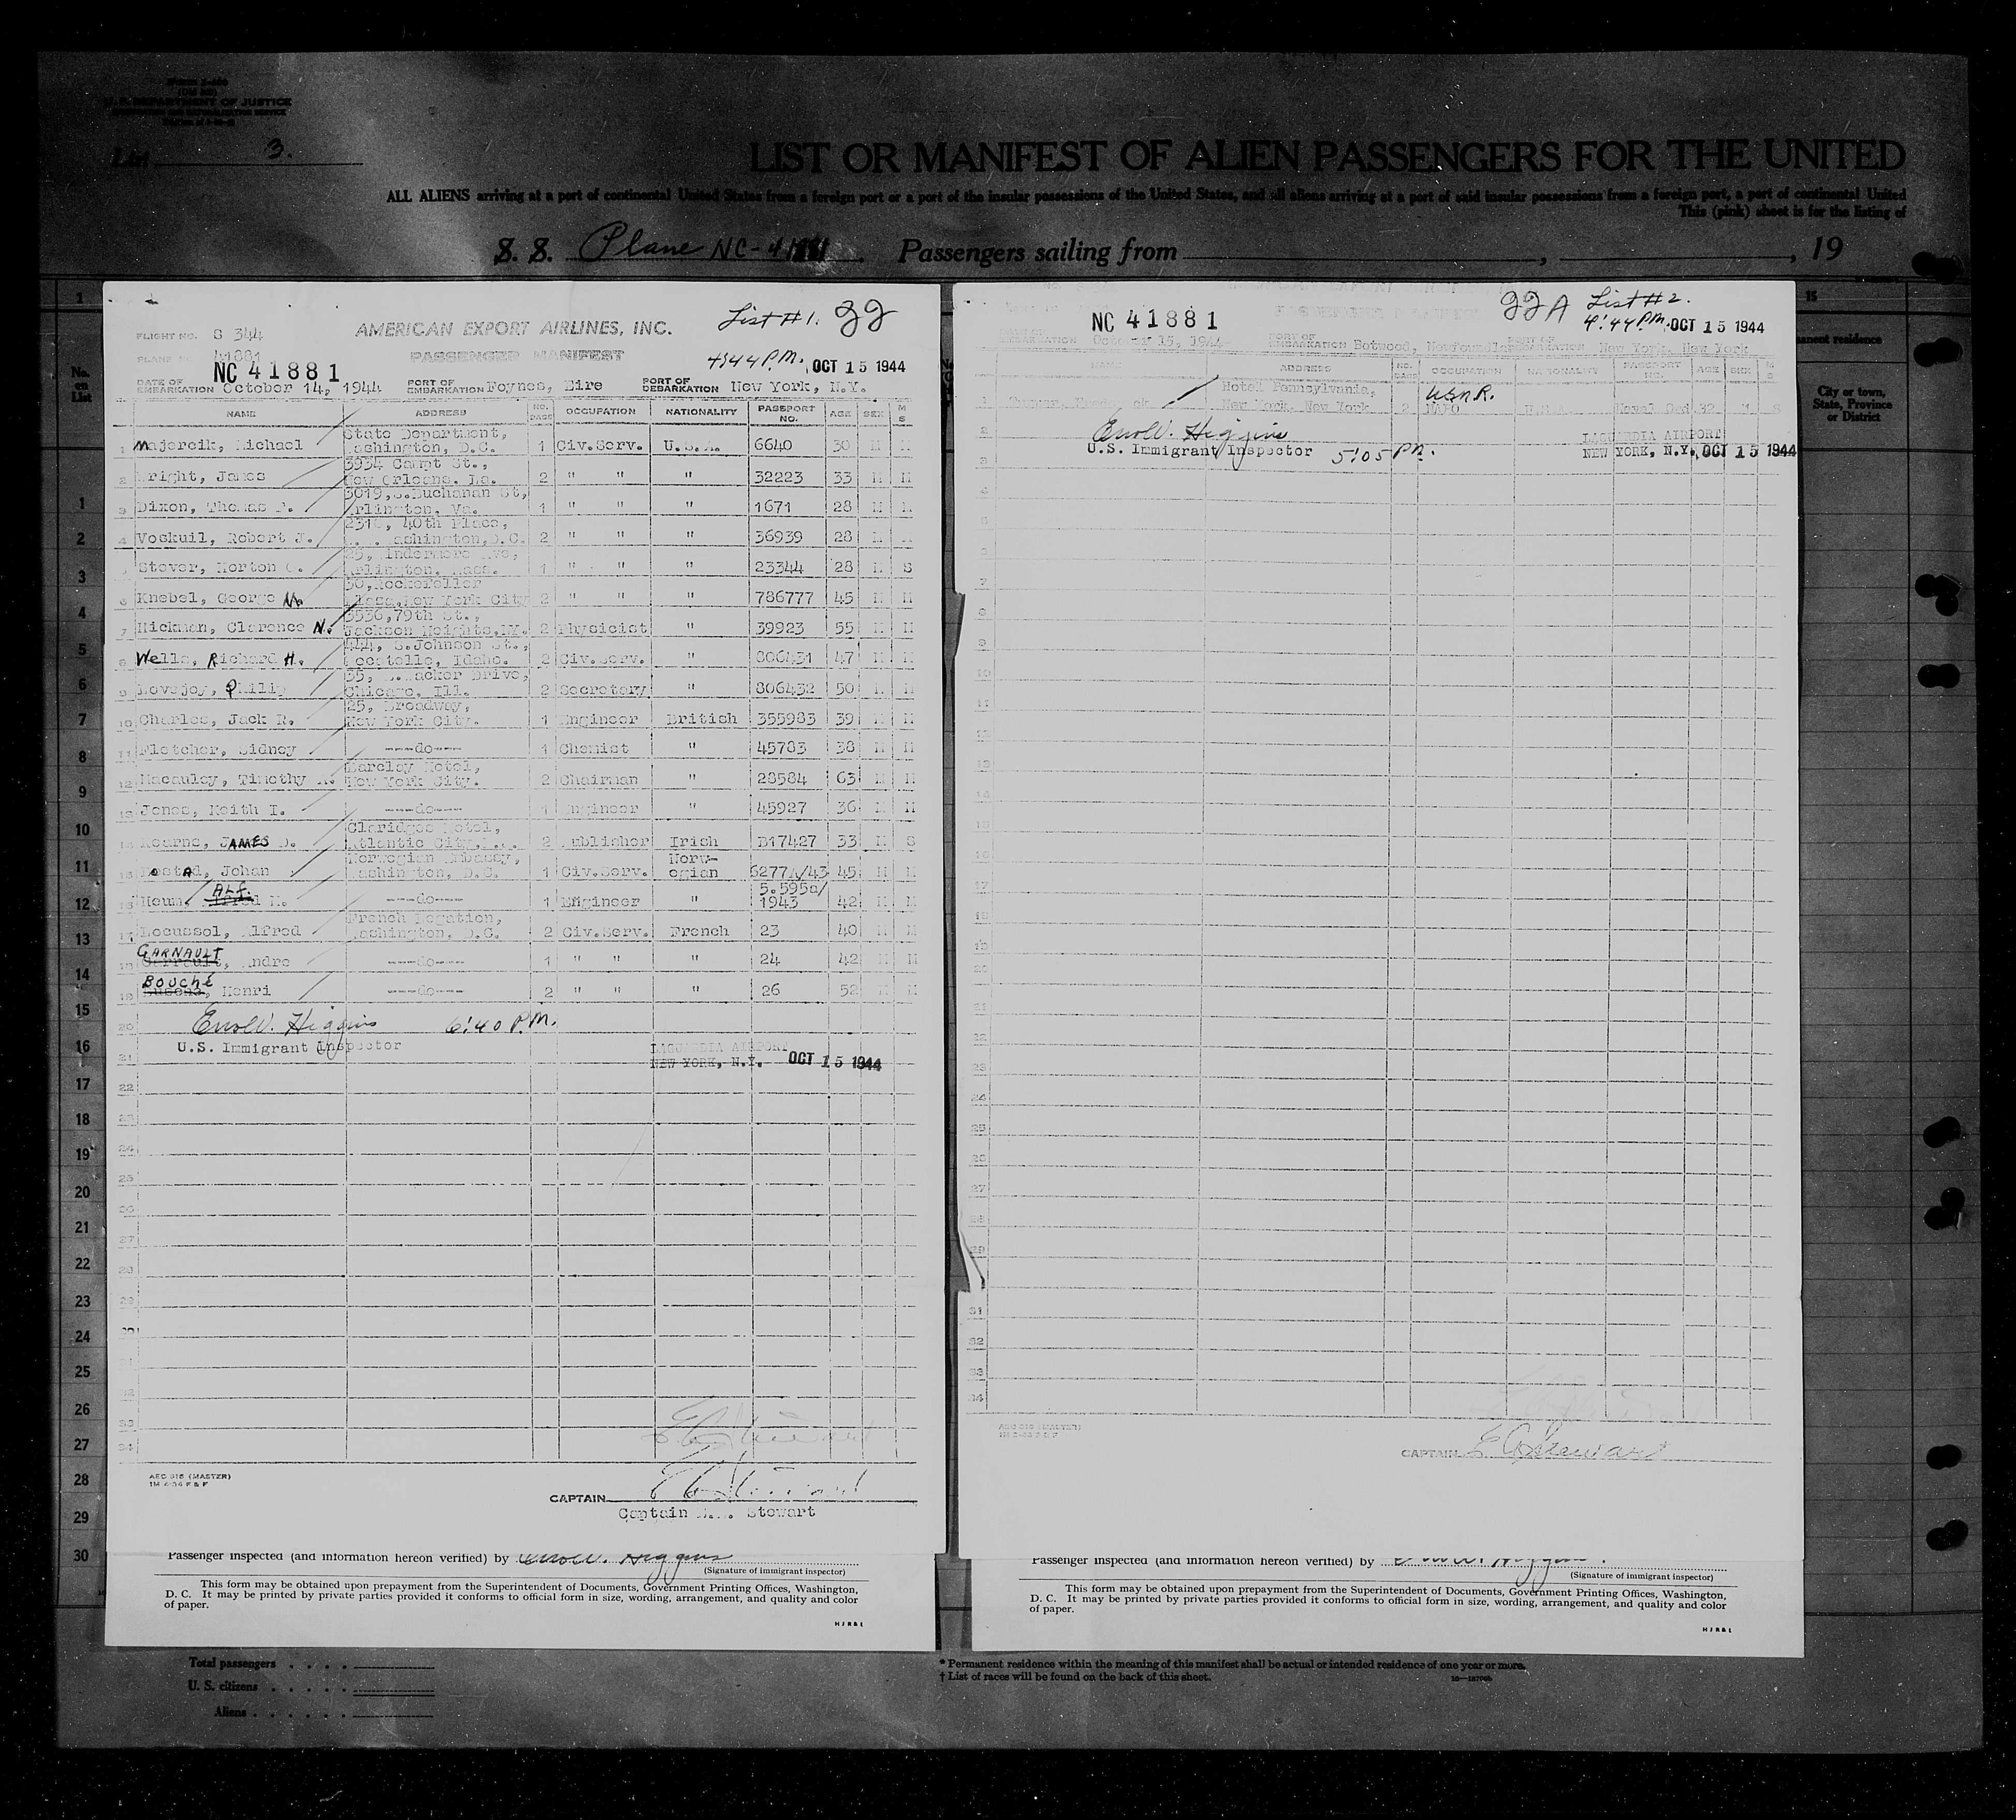 U. S. DEPARTMENT OF JUSTICE
List 3.
LIST OR MANIFEST OF ALIEN PASSENGERS FOR THE UNITED
ALL ALIENS arriving at a port of continental United States from a foreign port or a port of the insular possessions of the United States, and all aliens arriving at a port of said insular possessions from a foreign port, a port of continental United
This (pink) sheet is for the listing of
S. S. Plane NC-41881. Passengers sailing from , , 19
1
No. on List
List #1. 22
FLIGHT NO. S 344 AMERICAN EXPORT AIRLINES, INC.
PLANE NO. 41881 PASSENGER MANIFEST
NC 41881 4:44 P.M. OCT 15 1944
DATE OF EMBARKATION October 14, 1944 PORT OF EMBARKATION Foynes, Eire PORT OF DEBARKATION New York, N.Y.
NAME ADDRESS NO. PASS OCCUPATION NATIONALITY PASSPORT NO. AGE SEX M S
1 Majercik, Michael State Department, Washington, D.C. 1 Civ.Serv. U.S.A. 6640 30 M M
2 Wright, James 3934 Camp St., New Orleans, La. 2 " " " 32223 33 M M
3 Dixon, Thomas F. 3019, S.Buchanan St, Arlington, Va. 1 " " " 1671 28 M M
4 Voskuil, Robert J. 40th Place, Washington, D.C. 2 " " " 36939 28 M M
5 Stever, Horton G. Ave, Arlington, Mass. 1 " " " 23344 28 M S
6 Knebel, George M. 30, Rockefeller Plaza, New York City 2 " " " 786777 45 M M
7 Hickman, Clarence N. 3536, 79th St., Jackson Heights, NY. 2 Physicist " 39923 55 M M
8 Wells, Richard H. 444, S.Johnson St., Pocatello, Idaho. 2 Civ.Serv. " 806431 47 M M
9 Lovejoy, Philip 35, E. Wacker Drive, Chicago, Ill. 2 Secretary " 806432 50 M M
10 Charles, Jack R. 25, Broadway, New York City. 1 Engineer British 355983 39 M M
11 Fletcher, Sidney ----do---- 1 Chemist " 45783 38 M M
12 Macauley, Timothy Barclay Hotel, New York City. 2 Chairman " 28584 63 M M
13 Jones, Keith I. ----do---- 1 Engineer " 45927 36 M M
14 Kearns, JAMES D. Claridges Hotel, Atlantic City, 2 Publisher Irish B17427 33 M S
15 Johan Norwegian Embassy, Washington, D.C. 1 Civ.Serv. Norw-egian 6277A/43 45 M M
16 Heum, ALF. M. ----do---- 1 Engineer " 5.595a/1943 42 M M
17 Locussol, Alfred French Legation, Washington, D.C. 2 Civ.Serv. French 23 40 M M
18 GARNAULT, Andre ----do---- 1 " " " 24 42 M M
19 BOUCHÉ, Henri ----do---- 2 " " " 26 52 M M
20 Enso W. Higgins 6:40 P.M.
U.S. Immigrant Inspector
LAGUARDIA AIRPORT
NEW YORK, N.Y. OCT 15 1944
AEC 316 (MASTER)
CAPTAIN
Captain Stewart
Passenger inspected (and information hereon verified) by
(Signature of immigrant inspector)
This form may be obtained upon prepayment from the Superintendent of Documents, Government Printing Offices, Washington,
D. C. It may be printed by private parties provided it conforms to official form in size, wording, arrangement, and quality and color
of paper.
HJR&L
NC 41881 22A List #2.
4:44 P.M. OCT 15 1944
EMBARKATION October 15, 1944 PORT OF EMBARKATION Botwood, Newfoundland New York, New York
NAME ADDRESS OCCUPATION NATIONALITY PASSPORT NO. AGE SEX
1 Hotel Pennsylvania, New York, New York 2 U.S.N.R. 32 M S
Enso W. Higgins
U.S. Immigrant Inspector 5:05 P.M.
LAGUARDIA AIRPORT
NEW YORK, N.Y. OCT 15 1944
CAPTAIN E. C. Stewart
Passenger inspected (and information hereon verified) by
(Signature of immigrant inspector)
This form may be obtained upon prepayment from the Superintendent of Documents, Government Printing Offices, Washington,
D. C. It may be printed by private parties provided it conforms to official form in size, wording, arrangement, and quality and color
of paper.
HJR&L
15
permanent residence
City or town, State, Province or District
Total passengers
U. S. citizens
Aliens
* Permanent residence within the meaning of this manifest shall be actual or intended residence of one year or more.
† List of races will be found on the back of this sheet.